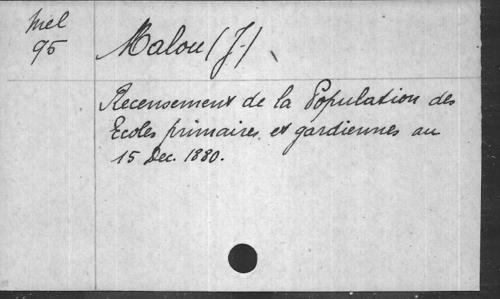 Mel
95
Malou (J.)
Recensement de la Population des
Ecoles primaires et gardiennes au
15 Dec. 1880.